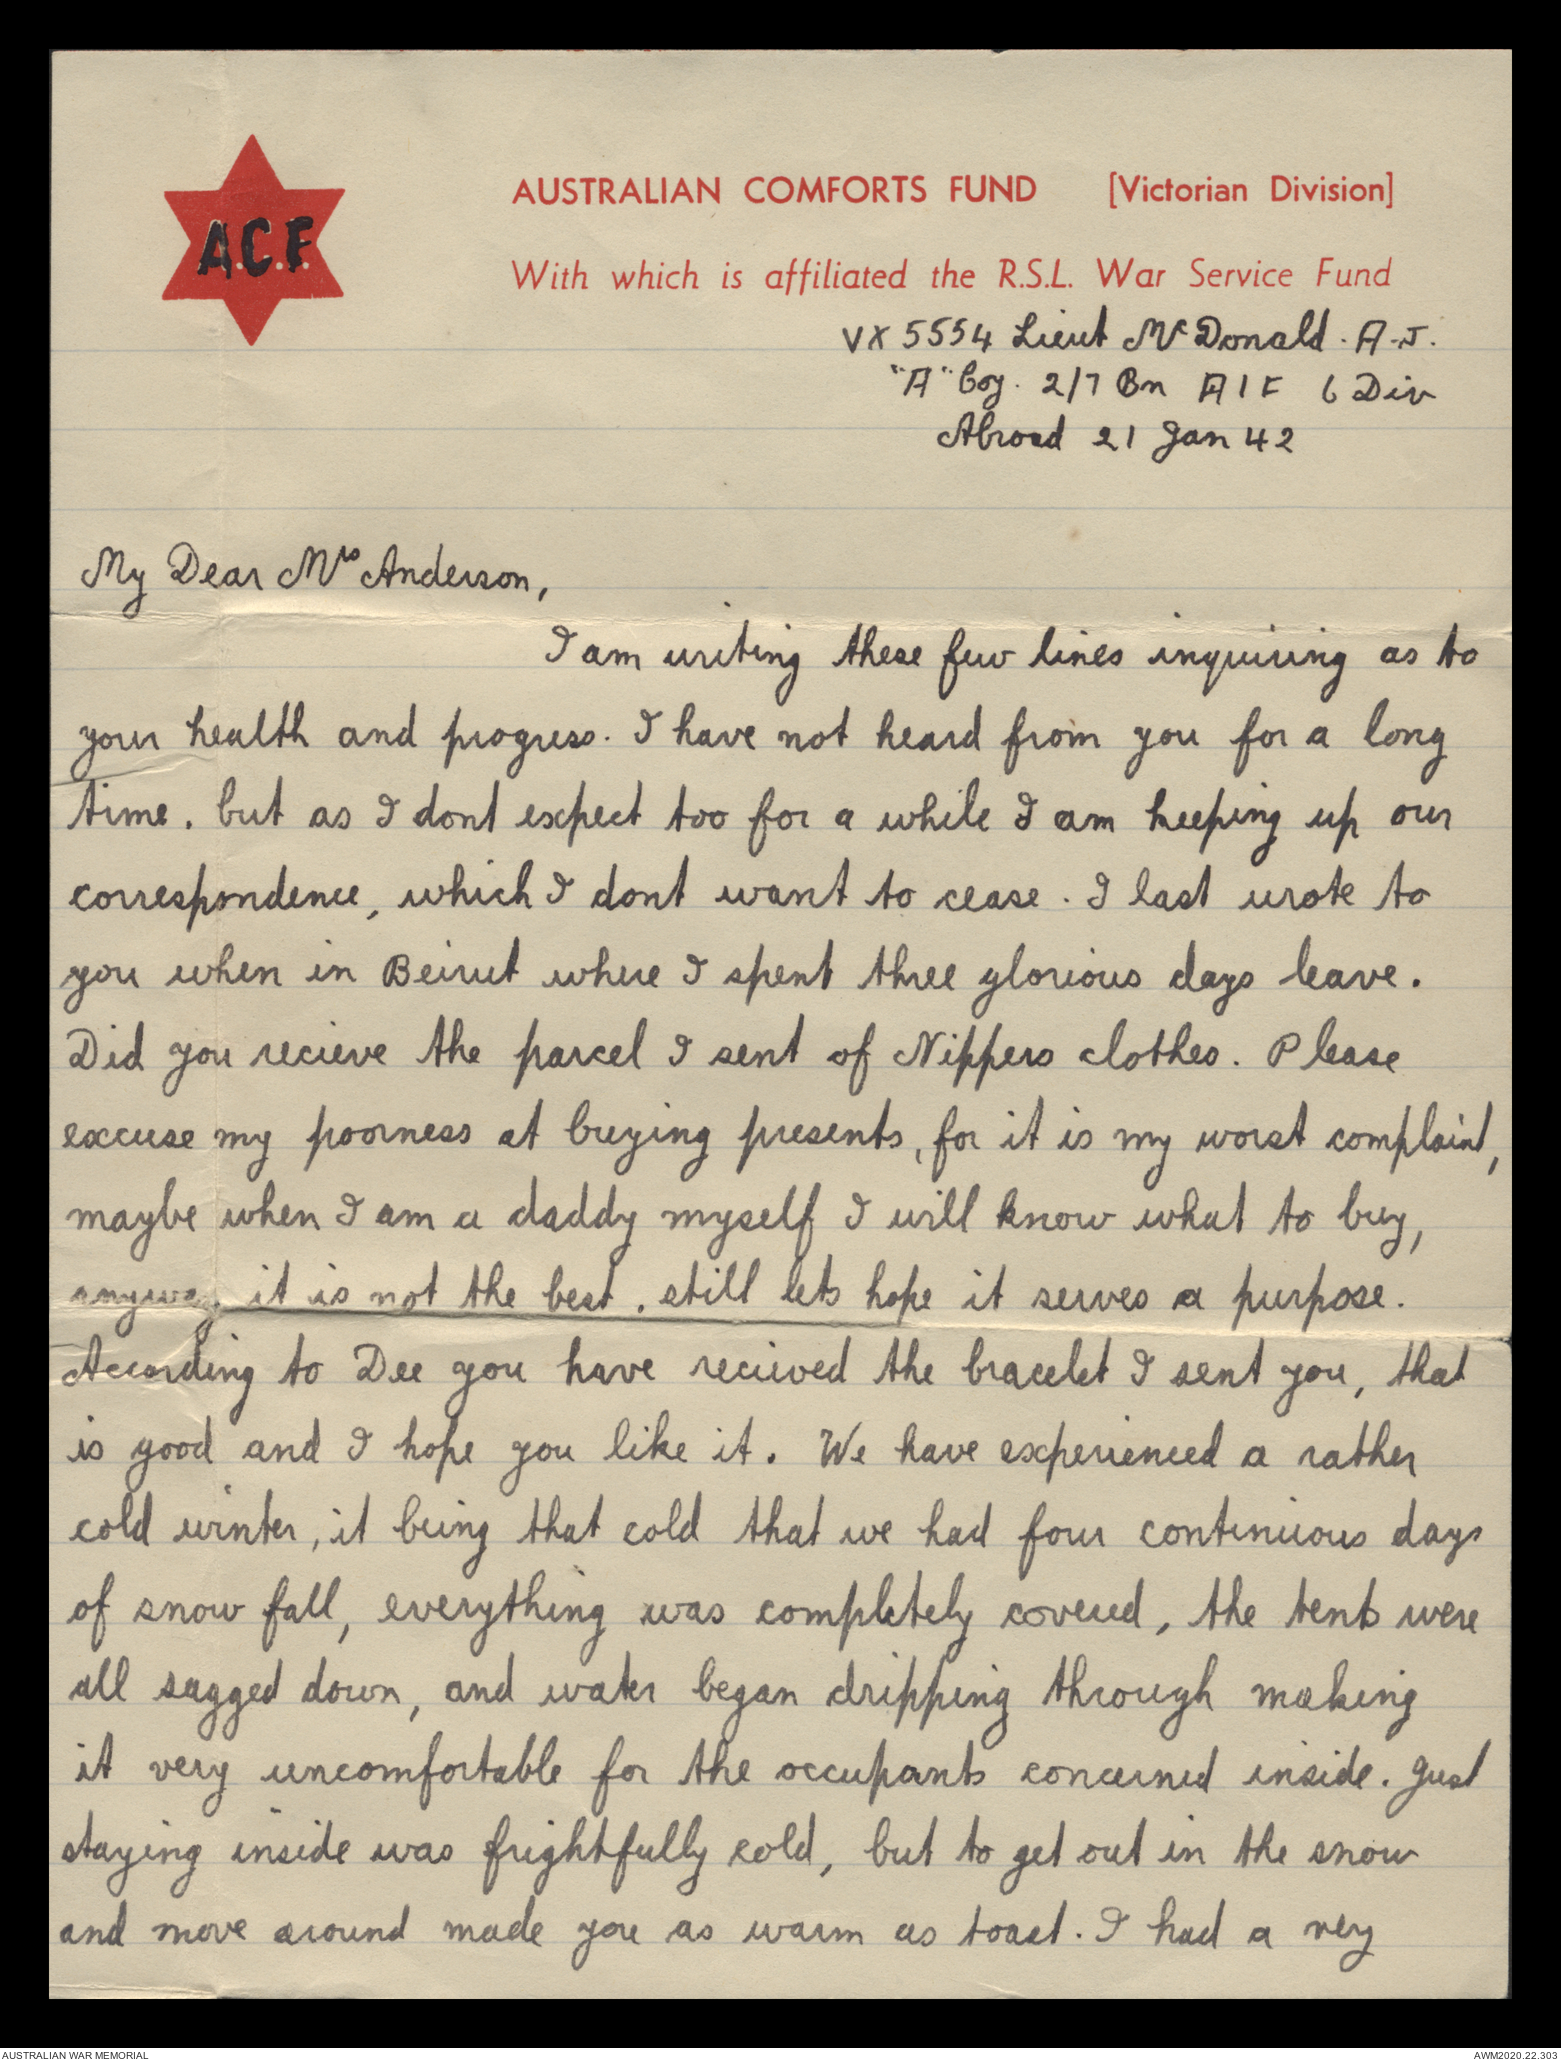 A.C.F.
AUSTRALIAN COMFORTS FUND [Victorian Division]
With which is affiliated the R.S.L. War Service Fund
VX 5554 Lieut McDonald. A.J.
"A" Coy. 2/7 Bn A I F 6 Div
Abroad 21 Jan 42
My Dear Mrs Anderson,
I am writing these few lines inquiring as to
your health and progress. I have not heard from you for a long
time. but as I dont expect too for a while I am keeping up our
correspondence, which I dont want to cease. I last wrote to
you when in Beirut where I spent three glorious days leave.
Did you recieve the parcel I sent of Nippers clothes. Please
excuse my poorness at buying presents, for it is my worst complaint,
maybe when I am a daddy myself I will know what to buy,
anyway, it is not the best. still lets hope it serves a purpose.
According to Dee you have recieved the bracelet I sent you, that
is good and I hope you like it. We have experienced a rather
cold winter, it being that cold that we had four continuous days
of snow fall, everything was completely covered, the tents were
all sagged down, and water began dripping through making
it very uncomfortable for the occupants concerned inside. Just
staying inside was frightfully cold, but to get out in the snow
and move around made you as warm as toast. I had a very
AUSTRALIAN WAR MEMORIAL AWM2020.22.303